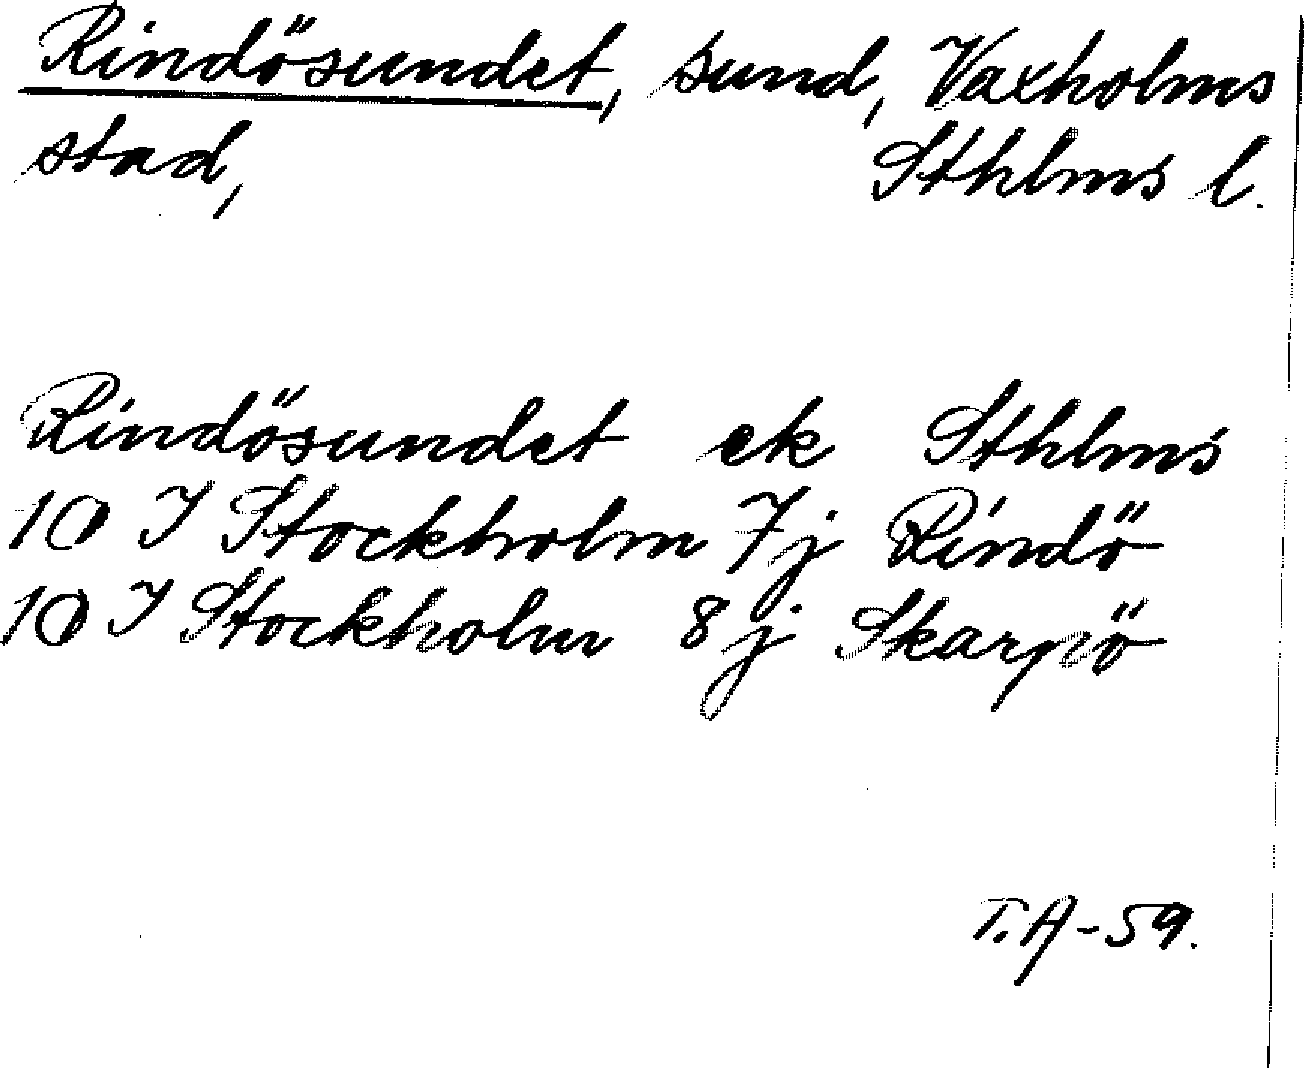 Rindösundet, sund, Vaxholms
stad, Sthlms l.
Rindösundet ek Sthlms
10 I Stockholm 7j Rindö
10 I Stockholm 8j Skarpö
T.A-59.